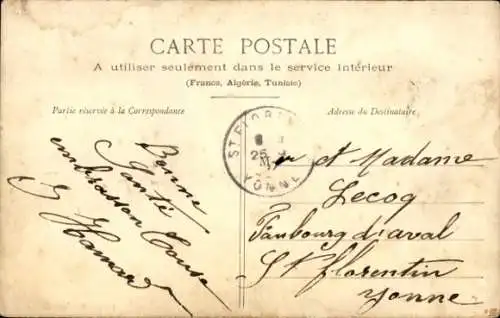 CARTE POSTALE
A utiliser seulement dans le service intérieur
(France, Algérie, Tunisie)
Partie réservée à la Correspondance
Adresse du Destinataire.
Bonne
Santé
embrasson Tous
ST FLOREN
25
YONNE
et Madame
Lecoq
Faubourg d'aval
St florentin
Yonne